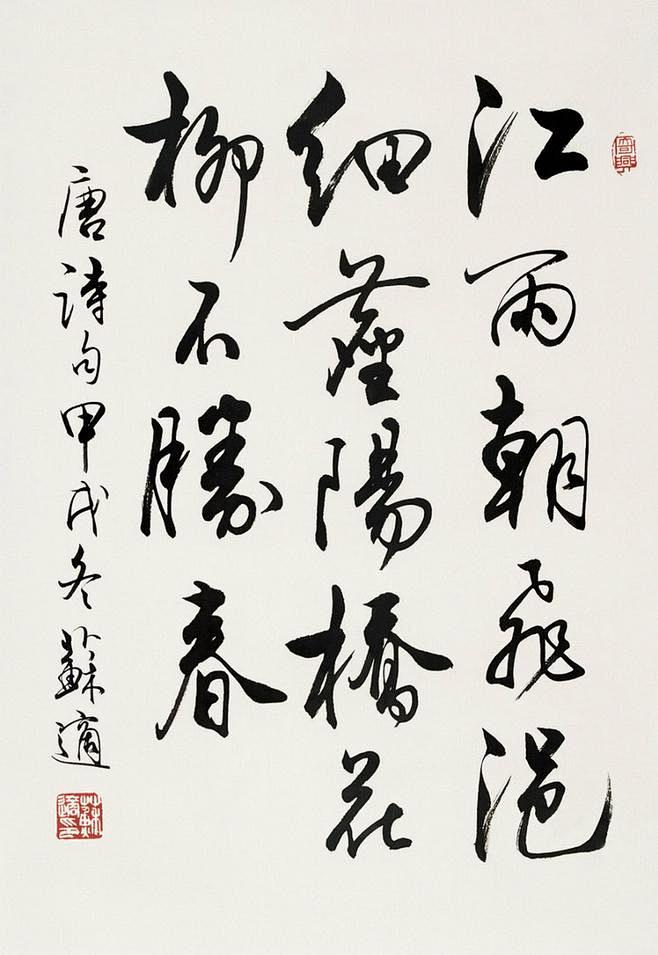 江雨朝飛浥
細塵陽橋花
柳不勝春
唐詩句甲戌冬蘇適
蘇適印